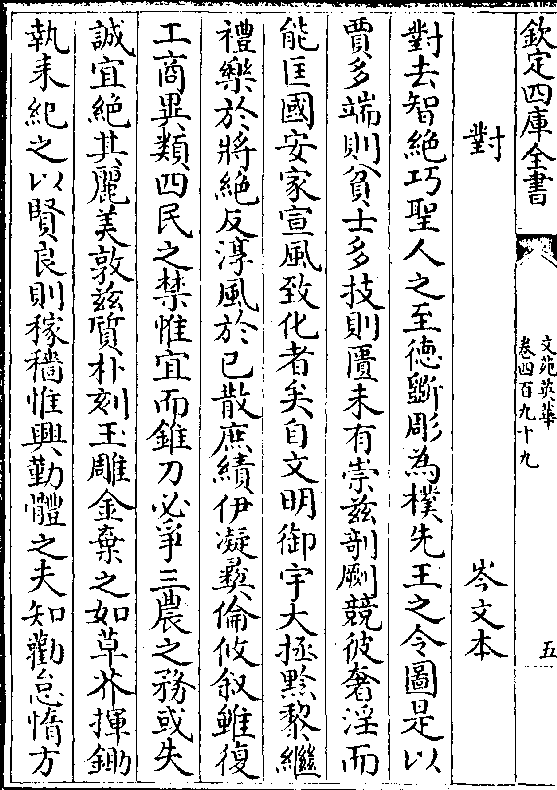 欽定四庫全書
文苑英華
卷四百九十九
五
對
岑文本
對去智絶巧聖人之至徳斵彫為樸先王之令圖是以
賈多端則貧士多技則匱未有崇兹剞劂競彼奢淫而
能匡國安家宣風致化者矣自文明御宇大拯黔黎繼
禮樂於將絶反淳風於已散庶績伊凝彜倫攸叙雖復
工商異類四民之禁惟宜而錐刀必爭三農之務或失
誠宜絶其麗美敦兹質朴刻玉雕金棄之如草芥揮鋤
執耒紀之以賢良則稼穡惟興勤體之夫知勸怠惰方